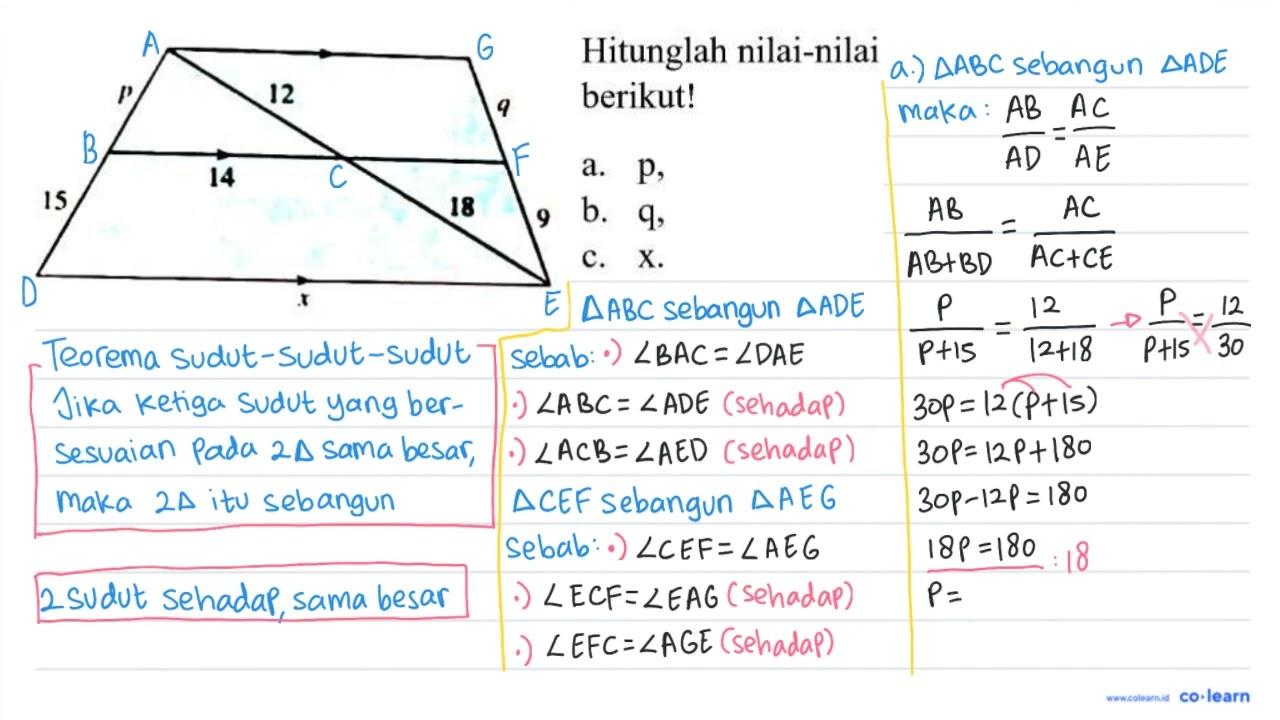 A
G
p
12
q
B
14
C
F
15
18
9
D
x
E
Hitunglah nilai-nilai
berikut!
a. p,
b. q,
c. x.
Teorema sudut-sudut-sudut
Jika ketiga sudut yang ber-
sesuaian pada 2∆ sama besar,
maka 2∆ itu sebangun
2 sudut sehadap, sama besar
∆ABC sebangun ∆ADE
sebab: •) ∠BAC = ∠DAE
•) ∠ABC = ∠ADE (sehadap)
•) ∠ACB = ∠AED (sehadap)
∆CEF sebangun ∆AEG
sebab: •) ∠CEF = ∠AEG
•) ∠ECF = ∠EAG (sehadap)
•) ∠EFC = ∠AGE (sehadap)
a.) ∆ABC sebangun ∆ADE
maka: AB/AD = AC/AE
AB/AB+BD = AC/AC+CE
P/P+15 = 12/12+18 → P/P+15 = 12/30
30P = 12(P+15)
30P = 12P + 180
30P - 12P = 180
18P = 180 : 18
P =
www.colearn.id co·learn